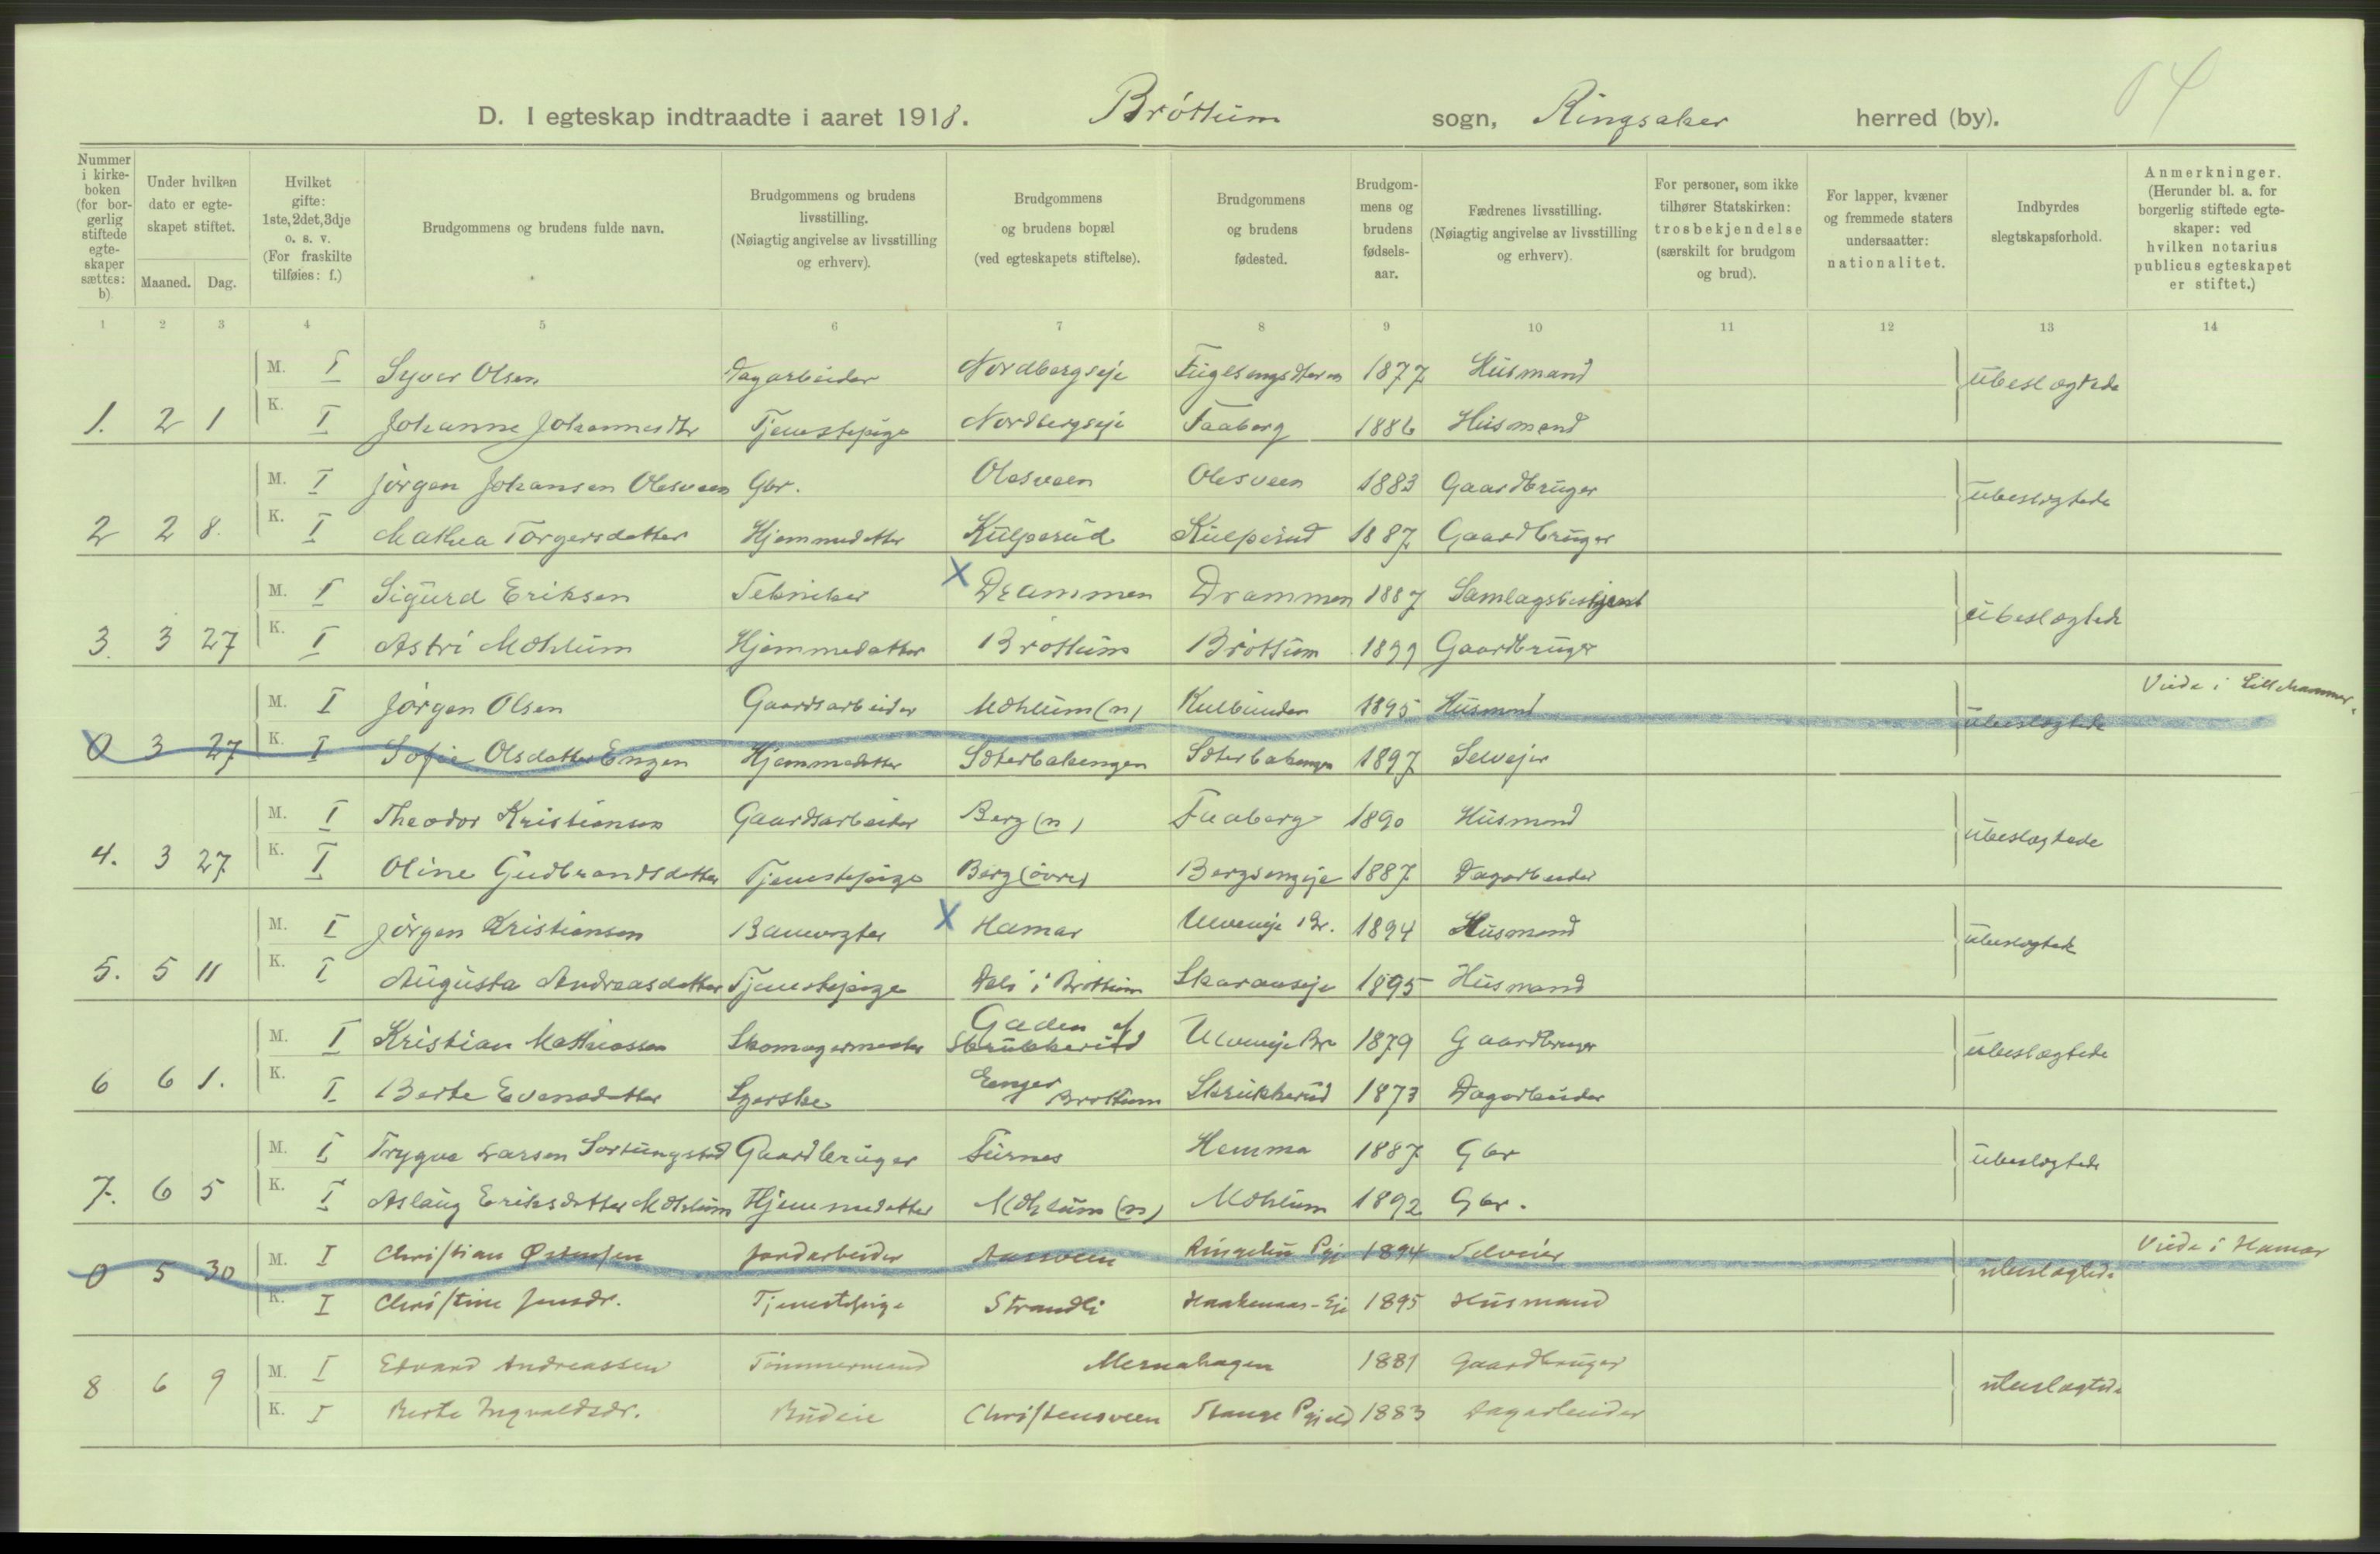 D. I egteskap indtraadte i aaret 1918. Bröttum sogn, Ringsaker herred (by).
Nummer i kirkeboken (for borgerlig stiftede egteskaper sættes: b)
Under hvilken dato er egteskapet stiftet.
Maaned. Dag.
Hvilket gifte: 1ste, 2det, 3dje o. s. v. (For fraskilte tilføies: f.)
Brudgommens og brudens fulde navn.
Brudgommens og brudens livsstilling. (Nøiagtig angivelse av livsstilling og erhverv).
Brudgommens og brudens bopæl (ved egteskapets stiftelse).
Brudgommens og brudens fødested.
Brudgommens og brudens fødselsaar.
Fædrenes livsstilling. (Nøiagtig angivelse av livsstilling og erhverv).
For personer, som ikke tilhører Statskirken: trosbekjendelse (særskilt for brudgom og brud).
For lapper, kvæner og fremmede staters undersaatter: nationalitet.
Indbyrdes slegtskapsforhold.
Anmerkninger. (Herunder bl. a. for borgerlig stiftede egteskaper: ved hvilken notarius publicus egteskapet er stiftet.)
1 2 3 4 5 6 7 8 9 10 11 12 13 14
M. I Syver Olsen Dagarbeider Nordbergseje 1877 Husmand ubeslægtede
1. 2 1 K. I Johanne Johannesdtr Tjenestepige Nordbergseje Faaberg 1886 Husmand
M. I Jörgen Johansen Olesveen Gbr. Olesveen Olesveen 1883 Gaardbruger ubeslægtede
2 2 8. K. I Mathea Torgersdatter Hjemmedatter Kulperud Kulperud 1887 Gaardbruger
M. I Sigurd Eriksen Tekniker X Drammen Drammen 1887 Samlagsbestyrer ubeslægtede
3. 3 27 K. I Astri Mæhlum Hjemmedatter Bröttum Bröttum 1899 Gaardbruger
M. I Jörgen Olsen Gaardsarbeider Mæhlum (n) Kulbunden 1895 Husmand ubeslægtede Viede i Lillehammer.
0 3 27 K. I Sofie Olsdatter Engen Hjemmedatter Sæterbakengen Sæterbakengen 1897 Selvejer
M. I Theodor Kristiansen Gaardsarbeider Berg (n) Faaberg 1890 Husmand ubeslægtede
4. 3 27 K. I Oline Gudbrandsdatter Tjenestepige Berg (övre) Bergsengeje 1887 Dagarbeider
M. I Jörgen Kristiansen Banevogter X Hamar Ulveneje i Br. 1894 Husmand ubeslægtede
5. 5 11 K. I Augusta Andreasdatter Tjenestepige Dali i Bröttum 1895 Husmand
M. I Kristian Mathiassen Skomagermester Gaden af Skrukkerud Ulveneje Br 1879 Gaardbruger ubeslægtede
6 6 1. K. I Berte Evensdatter Syerske Enger Bröttum Skrukkerud 1873 Dagarbeider
M. I Trygve Larsen Sortungstad Gaardbruger Furnes Hemma 1887 Gbr ubeslægtede
7. 6 5 K. I Aslaug Eriksdatter Mæhlum Hjemmedatter Mæhlum (n) Mæhlum 1892 Gbr.
M. I Christian Østensen Jordarbeider Aasveen Ringebu Pgj 1894 Selveier ubeslægtede Viede i Hamar
0 5 30 K. I Christine Jensdr. Tjenestepige Strandli Haakenaas-Eje 1895 Husmand
M. I Edvard Andreassen Tömmermand Mernahagen 1881 Gaardbruger ubeslægtede
8 6 9 K. I Berte Ingvaldsdr. Budeie Christensveen Stange Pgjeld 1883 Dagarbeider